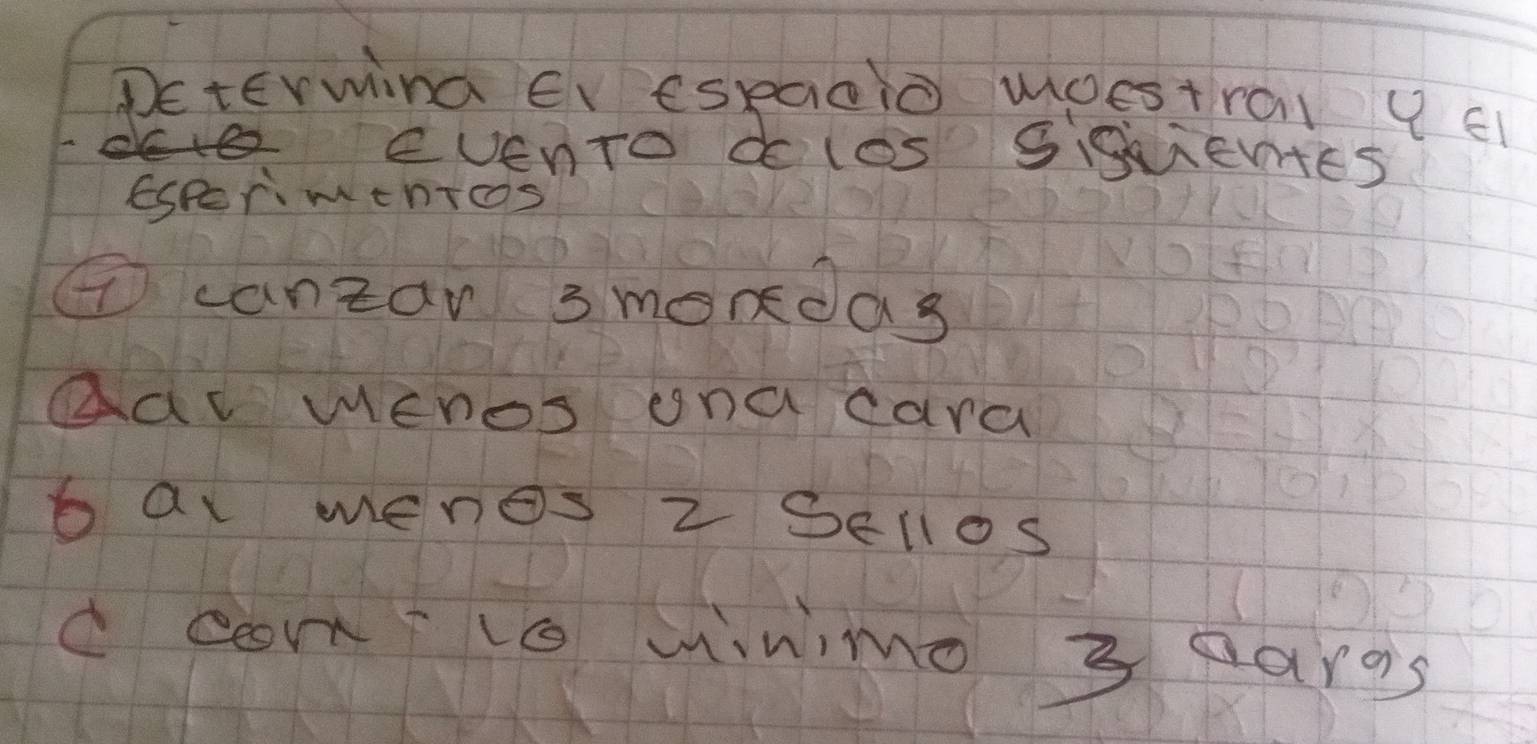 Determina El espacio moestral y el
evento de los siguientes
esperimentos
① Lanzar 3 monedas
a al menos una cara
b al menos 2 sellos
c com lo minimo 3 caras